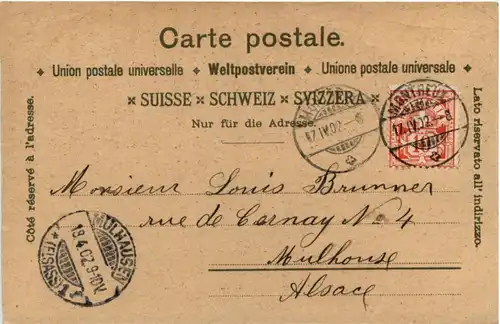 Carte postale.
✦ Union postale universelle ✦ Weltpostverein ✦ Unione postale universale ✦
× SUISSE × SCHWEIZ × SVIZZERA ×
Nur für die Adresse.
Côté réservé à l'adresse.
Lato riservato all' indirizzo.
MONTREUX
17.IV.02.-6
MONTREUX
17.IV.02.-6
Monsieur Louis Brunner
rue de Carnay No 4
Mulhouse
Alsace
MÜLHAUSEN
18.4.02.9-10V.
* (ELSASS) *